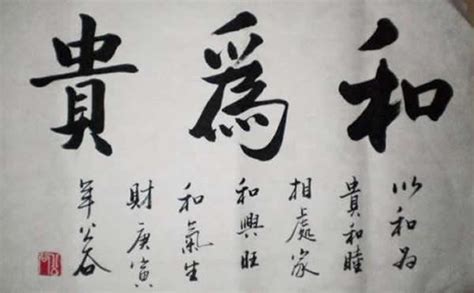 和爲貴
以和为
貴和睦
相處家
和興旺
和氣生
財庚寅
年公谷